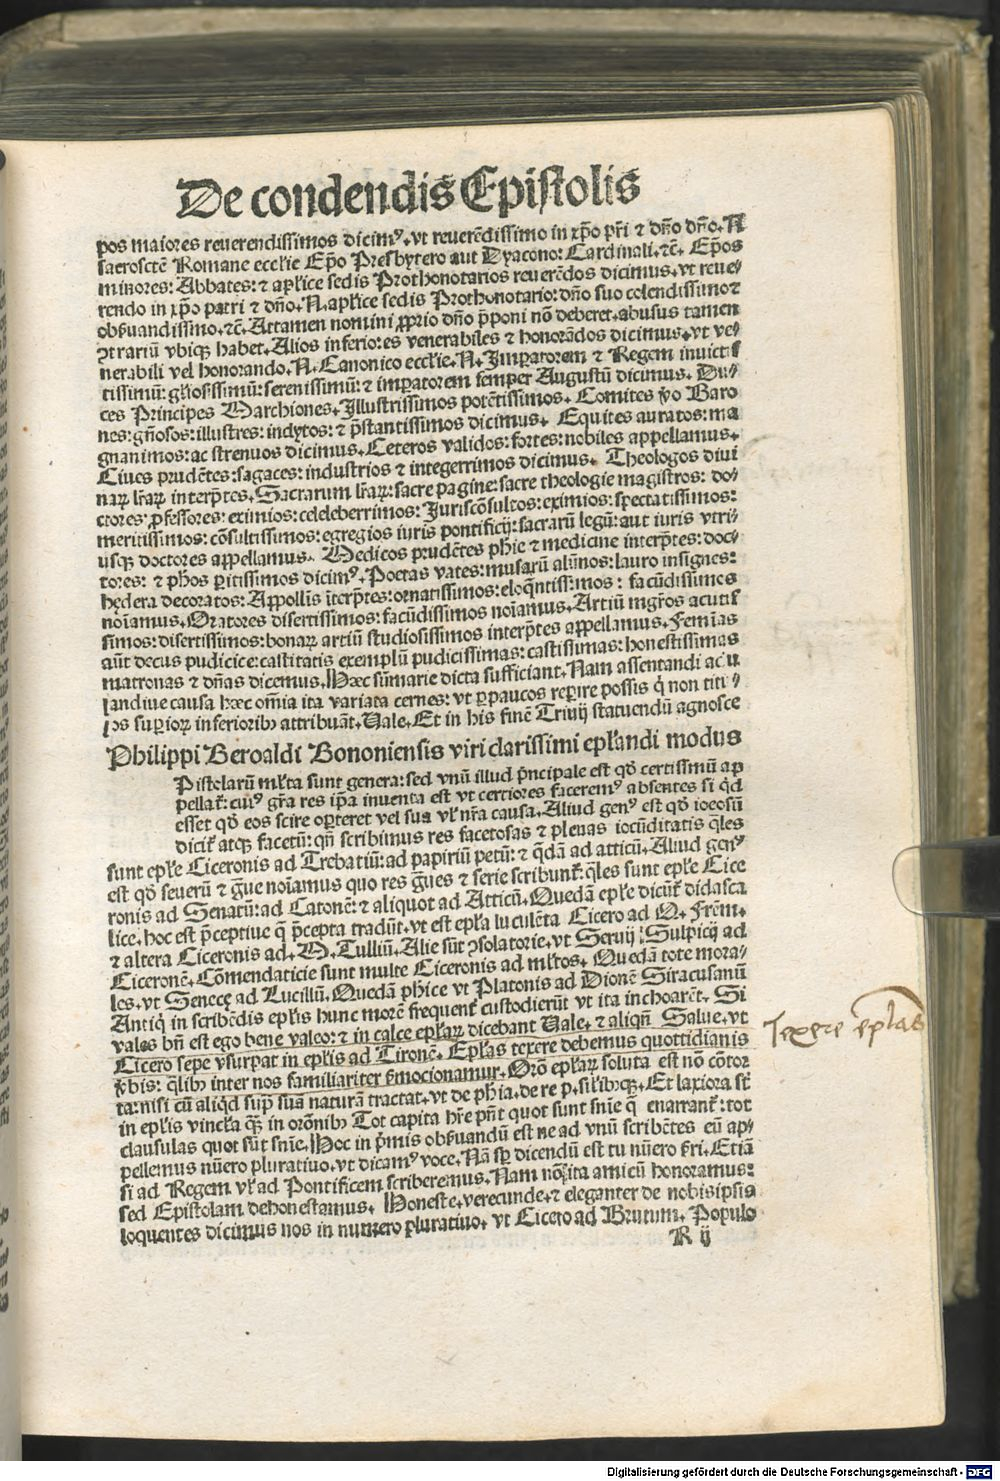 De condendis Epistolis
pos maiores reuerendissimos dicimꝰ. vt reuerēdissimo in xp̄o pr̄i ⁊ dn̄o dn̄o. N
sacrosctē Romane eccľie Ep̄o Presbytero aut Dyacono: Cardinali. ⁊č. Ep̄os
minores: Abbates: ⁊ apľice sedis Prothonotarios reuerēdos dicimus. vt reue⸗
rendo in xp̄o patri ⁊ dn̄o. N. apľice sedis Prothonotario: dn̄o suo colendissimo ⁊
obẜuandissimo. ⁊č. Attamen nomini ꝓprio dn̄o p̄poni nō deberet. abusus tamen
ꝯtrariū vbiqꝫ habet. Alios inferiores venerabiles ⁊ honorādos dicimus. vt ve⸗
nerabili vel honorando. N. Canonico eccľie. N. Imꝑatorem ⁊ Regem inuictis
tissimū: gľiosissimū: serenissimū: ⁊ imꝑatorem semper Augustū dicimus. Du⸗
ces Principes Marchiones. Illustrissimos potētissimos. Comites ꝟo Baro
nes: gn̄osos: illustres: inclytos: ⁊ p̄stantissimos dicimus. Equites auratos: ma
gnanimos: ac strenuos dicimus. Ceteros validos: fortes: nobiles appellamus.
Ciues prudētes: sagaces: industrios ⁊ integerrimos dicimus. Theologos diui
naꝝ lr̄aꝝ interp̄tes. Sacrarum lr̄aꝝ: sacre pagine: sacre theologie magistros: do⸗
ctores: ꝓfessores: eximios: celeberrimos: Juriscōsultos: eximios: spectatissimos:
meritissimos: cōsultissimos: egregios iuris pontificij: sacrarū legū: aut iuris vtri⸗
usqꝫ doctores appellamus. Medicos prudētes phie ⁊ medicine interp̄tes: doc⸗
tores: ⁊ phos ꝑitissimos dicimꝰ. Poetas vates: musarū alūnos: lauro insignes:
hędera decoratos: Appollis īterp̄tes: ornatissimos: eloqn̄tissimos: facūdissimos
noīamus. Oratores disertissimos: facūdissimos noīamus. Artiū mgr̄os acutis
simos: disertissimos: bonaꝝ artiū studiosissimos interp̄tes appellamus. Femīas
aūt decus pudicicie: castitatis exemplū pudicissimas: castissimas: honestissimas
matronas ⁊ dn̄as dicemus. Hæc sūmarie dicta sufficiant. Nam assentandi ac u
landiue causa hæc om̄ia ita variata cernes: vt ꝑpaucos reꝑire possis q̇ non titu⸗
los suꝑioꝝ inferioribꝰ attribuāt. Vale. Et in his finē Triuij statuendū agnosce
Philippi Beroaldi Bononiensis viri clarissimi epľandi modus
Pistolarū mľta sunt genera: sed vnū illud p̄ncipale est qď certissimū ap
pellat᷑: cuiꝰ gr̄a res ip̄a inuenta est vt certiores faceremꝰ absentes si q̇d
esset qď eos scire oporteret vel sua vľ nr̄a causa. Aliud genꝰ est qď iocosū
dicit᷑ atqꝫ facetū: qn̄ scribimus res facetosas ⁊ plenas iocūditatis q̄les
sunt epľe Ciceronis ad Trebatiū: ad papiriū petū: ⁊ q̄dā ad atticū. Aliud genꝰ
est qď seuerū ⁊ g̃ue noīamus quo res g̃ues ⁊ serie scribunt᷑: q̄les sunt epľe Cice
ronis ad Senatū: ad Catonē: ⁊ aliquot ad Atticū. Quedā epľe dicūt᷑ didasca
lice. hoc est p̄ceptiue q̄ p̄cepta tradūt. vt est epľa luculēta Cicero ad Q. Frēm.
⁊ altera Ciceronis ad. M. Tulliū. Alie sūt ꝯsolatorie. vt Seruij Sulpicij ad
Ciceronē. Cōmendaticie sunt multe Ciceronis ad mľtos. Quedā tote mora⸗
les. vt Senecę ad Lucillū. Quedā phice vt Platonis ad Dionē Siracusanū
Antiq̇ in scribēdis epľis hunc morē frequent᷑ custodierūt vt ita inchoarēt. Si
vales bn̄ est ego bene valeo: ⁊ in calce epľaꝝ dicebant Vale. ⁊ aliqn̄ Salue. vt
Cicero sepe vsurpat in epľis ad Tironē. Epľas texere debemus quottidianis
ꝟbis: q̄libꝰ inter nos familiariter ẜmocionamur. Orō epľaꝝ soluta est nō cōtor
ta: nisi cū aliq̇d suꝑ suā naturā tractat. vt de phia. de re p. siľibꝰqꝫ. Et laxiora st̄
in epľis vincľa q̄ꝫ in orōnibꝰ Tot capita hr̄e pn̄t quot sunt sn̄ie q̄ enarrant᷑: tot
clausulas quot sūt sn̄ie. Hoc in p̄mis obẜuandū est ne ad vnū scribētes eū ap⸗
pellemus nūero plurativo. vt dicamꝰ voce. Nā sꝑ dicendū est tu nūero ẜri. Etiā
si ad Regem vľ ad Pontificem scriberemus. Nam non ita amicū honoramus:
sed Epistolam dehonestamus. Honeste. verecunde. ⁊ eleganter de nobisipsis
loquentes dicimus nos in numero pluratiuo. vt Cicero ad Brutum. Populo
R ij
Texere ep̄las
Digitalisierung gefördert durch die Deutsche Forschungsgemeinschaft - DFG